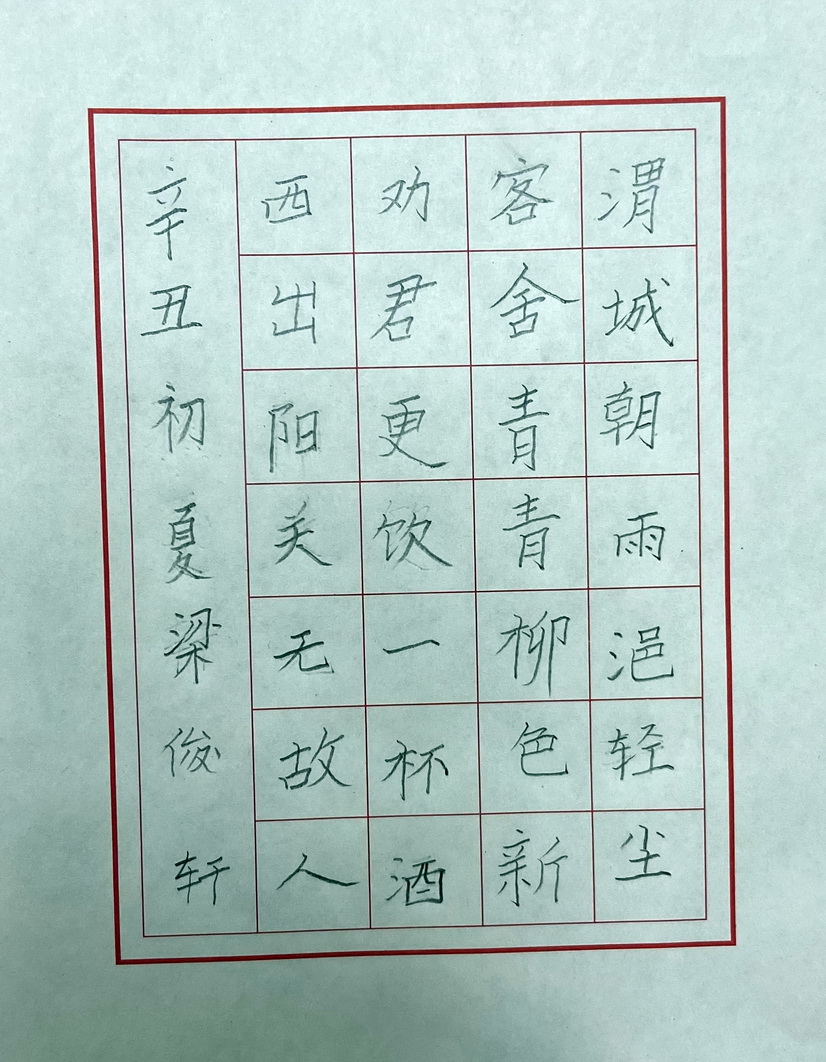 渭城朝雨浥轻尘
客舍青青柳色新
劝君更饮一杯酒
西出阳关无故人
辛丑初夏梁俊轩